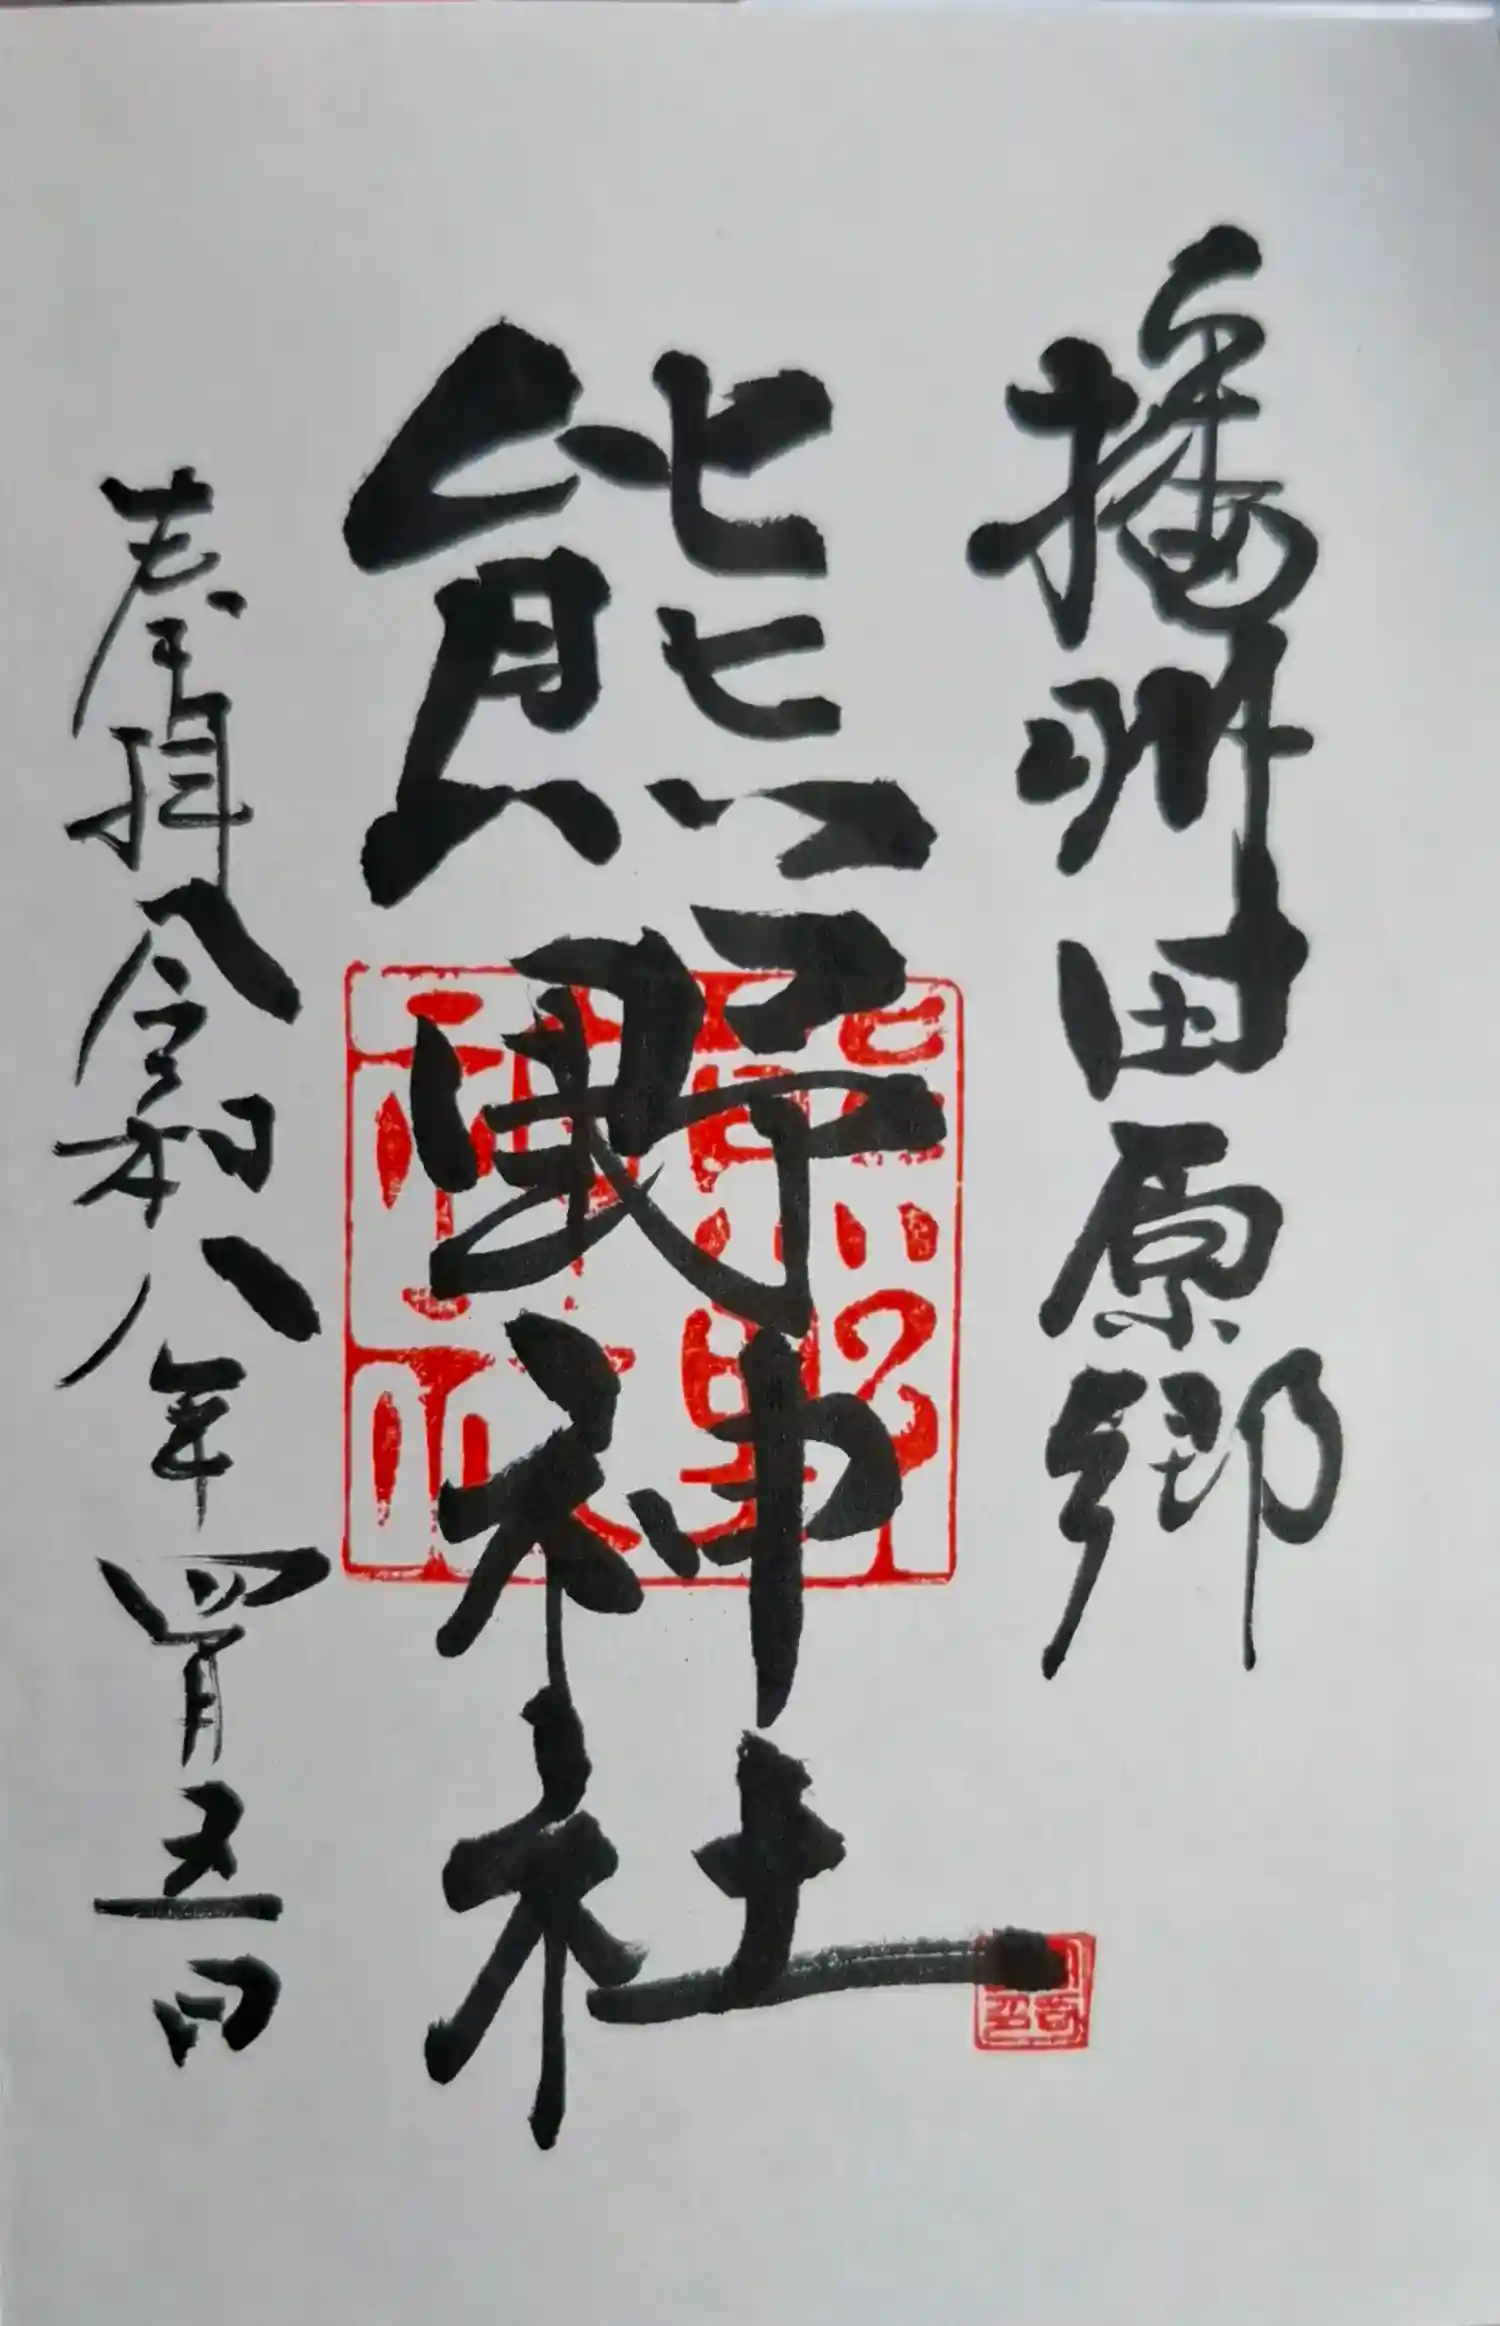 播州田原郷
熊野神社
奉拝令和八年四月五日
熊野神社